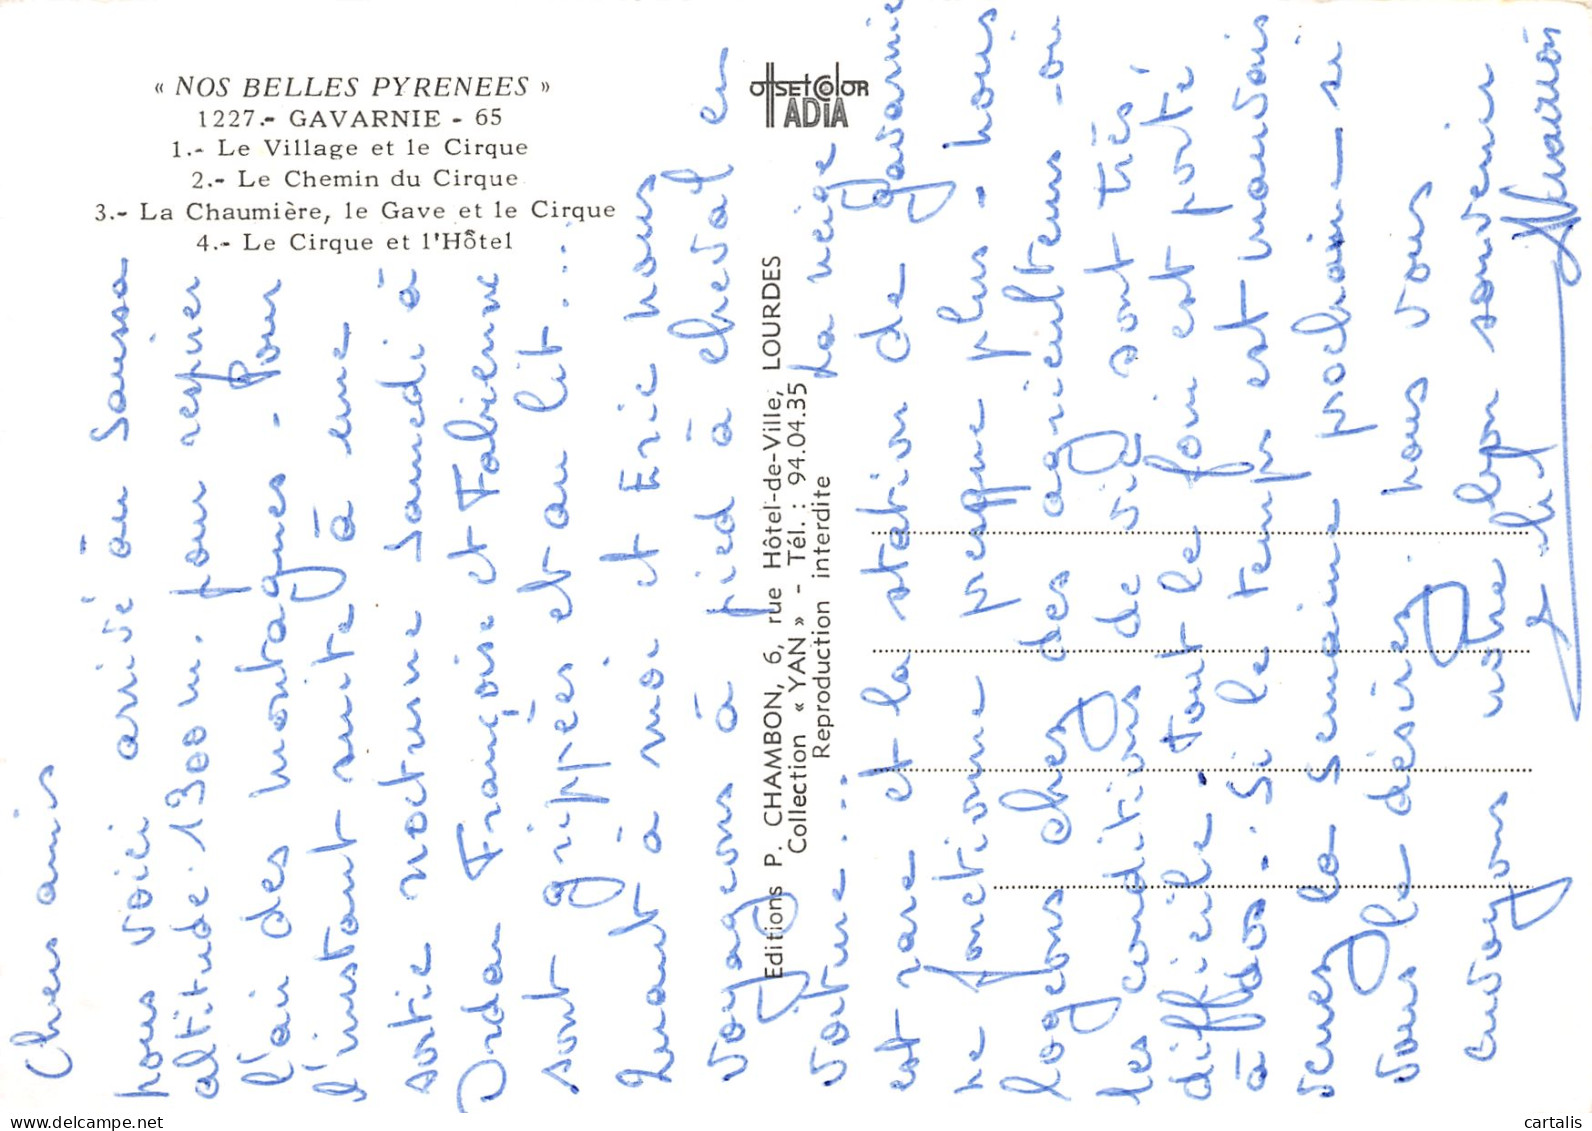 « NOS BELLES PYRENEES »
1227.- GAVARNIE - 65
1.- Le Village et le Cirque
2.- Le Chemin du Cirque
3.- La Chaumière, le Gave et le Cirque
4.- Le Cirque et l'Hôtel
OFFSET COLOR
ADIA
Editions P. CHAMBON, 6, rue Hôtel-de-Ville, LOURDES
Collection « YAN » - Tél. : 94.04.35
Reproduction interdite
Chers amis
nous voici arrivé au Saussa
altitude 1300 m. pour respirer
l'air des montagnes - Pour
l'instant suite à une
sortie nocturne Samedi à
Ordan Françoise et Fabienne
sont grippées et au lit ...
Quant à moi et Eric nous
voyageons à pied à cheval en
voiture ... La neige
est rare et la station de Gavarnie
ne fonctionne presque plus - nous
logeons chez des agriculteurs - où
les conditions de vie sont très
difficile. Tout le foin est porté
à dos. Si le temps est mauvais
venez la semaine prochaine - si
vous le désirez nous vous
envoyons notre bon souvenir